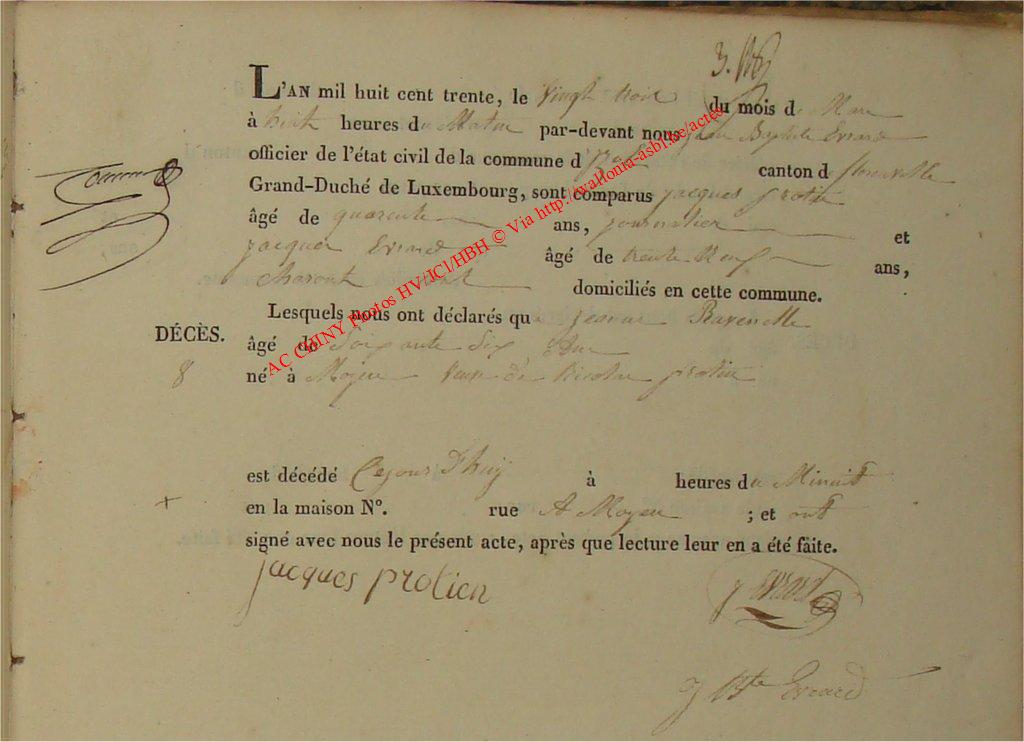 L'AN mil huit cent trente, le Vingt trois du mois de Mars
à huit heures du Matin par-devant nous Jean Baptiste Evrard
officier de l'état civil de la commune d canton de florenville
Grand-Duché de Luxembourg, sont comparus jacques protin
âgé de quarente ans, journalier et
jacques Evrard âgé de trente Neuf ans,
domiciliés en cette commune.
Lesquels nous ont déclarés que jeanne Ravenelle
DÉCÈS.
âgé de Soixante Six Ans
8 né à Moyen Veuve de Nicolas protin
est décédé Cejour d'huy à heures du Minuit
+ en la maison N°. rue A Moyen ; et ont
signé avec nous le présent acte, après que lecture leur en a été faite.
jacques protien
j evrard
J Bte Evrard
AC CHINY Photos HV/JCl/HBH © Via http://wallonia-asbl.be/actes